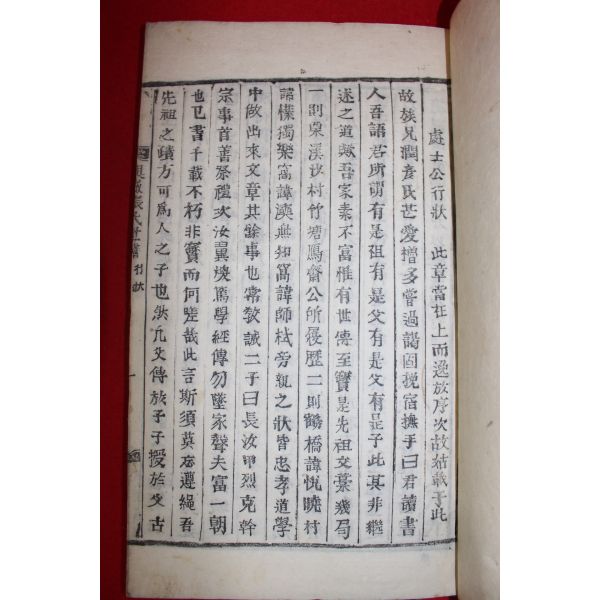 處士公行狀 此章當在上而逸於序次故姑載于此
故族兄潤彦氏芒愛增多嘗過謁固挽宿撫手曰君讀書
人吾語君所謂有是祖有是父有是父有是子此其非繼
述之道歟吾家素不富惟有世傳至寶是先祖文藁幾局
一則栗溪 村竹塘鳳齋公所優歷二則鶴橋諱悅曉村
諱檏獨樂窩諱漢無知窩諱師栻旁親之狀皆忠孝道學
中做出來文章其餘事也常敎誡二子曰長汝甲烈克幹
宗事首善祭禮次汝翼煥篤學經傳勿墜家聲夫富一朝
也 書千載不朽非寶而何嗟哉此言斯須莫忘遵繩吾
先祖之蹟方可爲人之子也然凡父傳於子子授於父古
張氏世蹟 行狀 一